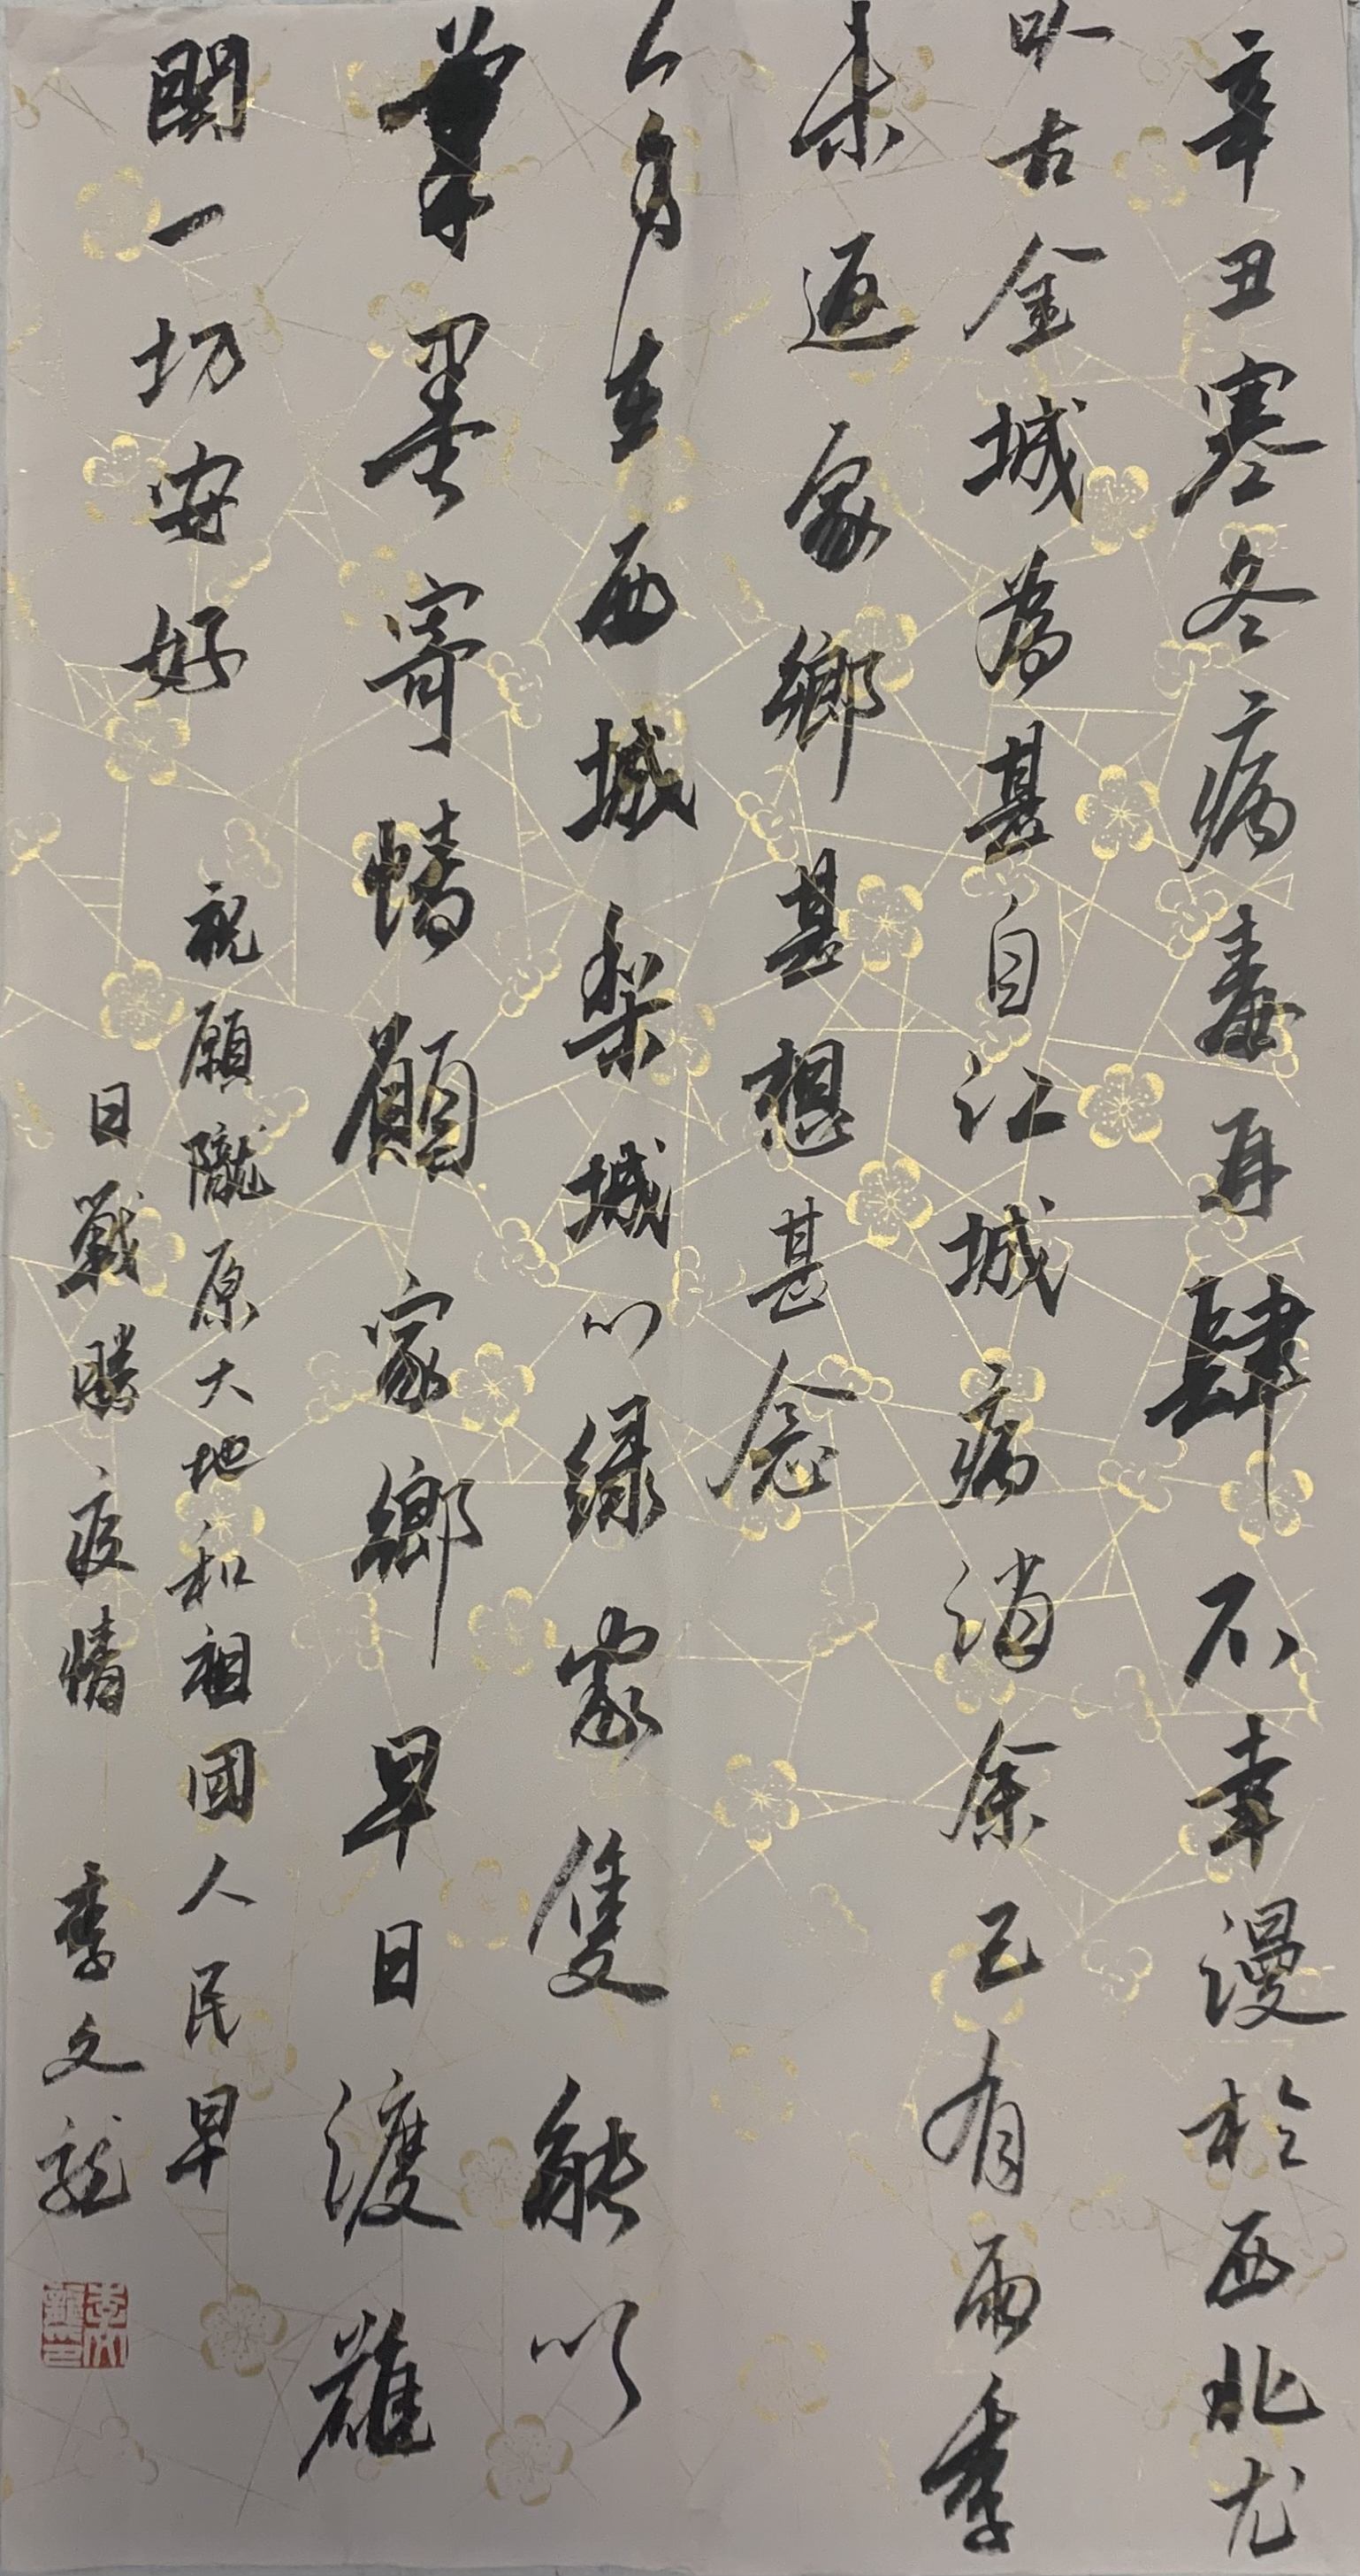 辛丑寒冬病毒再肆不幸漫於西北尤
以古金城為甚自江城病消余已有兩季
未返家鄉甚想甚念
身在西域梨城心緣家隻能以
筆墨寄情願家鄉早日渡難
關一切安好
祝願隴原大地和祖國人民早
日戰勝疫情 李文龍
李文龍印